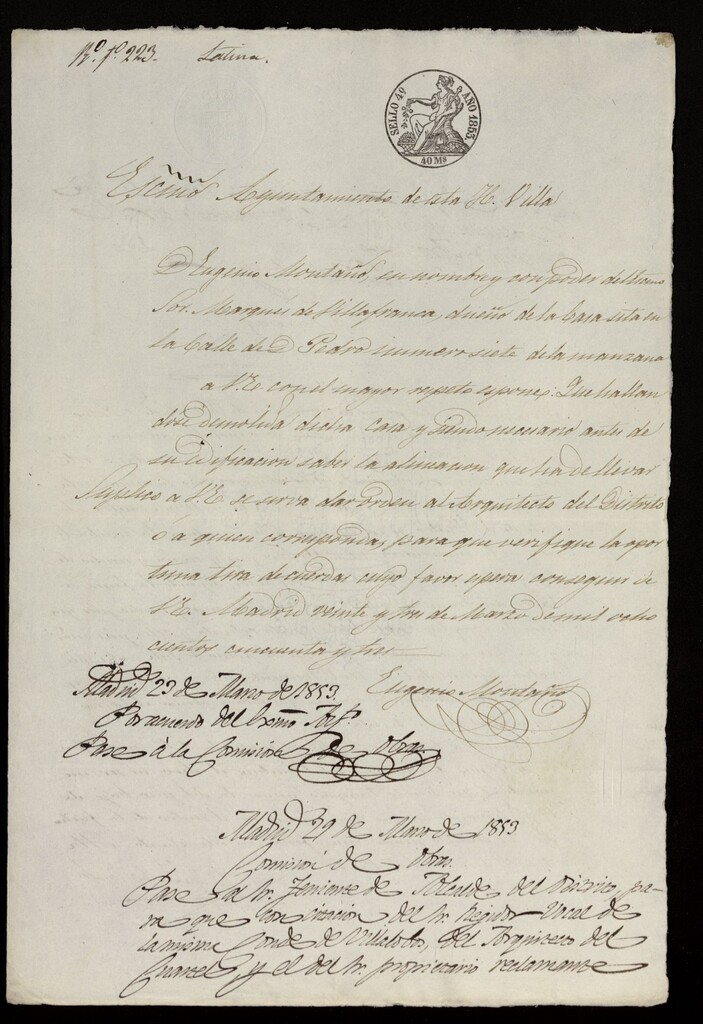 Rº. fº. 223. Latina.
SELLO 4º AÑO 1853.
40 Ms
Escmo Ayuntamiento de esta H. Villa
D Eugenio Montaño, en nombre y con poder del Escmo
Sor. Marqués de Villafranca, dueño de la Casa sita en
la Calle de D Pedro numero siete de la manzana
a V.E. con el mayor respeto espone: Que hallan
dose demolida dicha casa y siendo necesario antes de
su edificacion saber la alineacion que ha de llevar
Suplico a V.E. se sirva dar orden al Arquitecto del Distrito
ó a quien corresponda, para que verifique la opor
tuna tira de cuerdas cuyo favor espera conseguir de
V.E. Madrid veinte y tres de Marzo de mil ocho
cientos cincuenta y tres
Eugenio Montaño
Madrid 23 de Marzo de 1853.
Por acuerdo del Exmo Ayto.
Pase à la Comision de Obras.
Madrid 29 de Marzo de 1853
Comision de Obras.
Pase al Sr. Teniente de Alcalde del distrito, pa-
ra que con citacion del Sr. Regidor Vocal de
la misma Conde de Villalobos, del Arquitecto del
Cuartel, y el del Sr. propietario reclamante